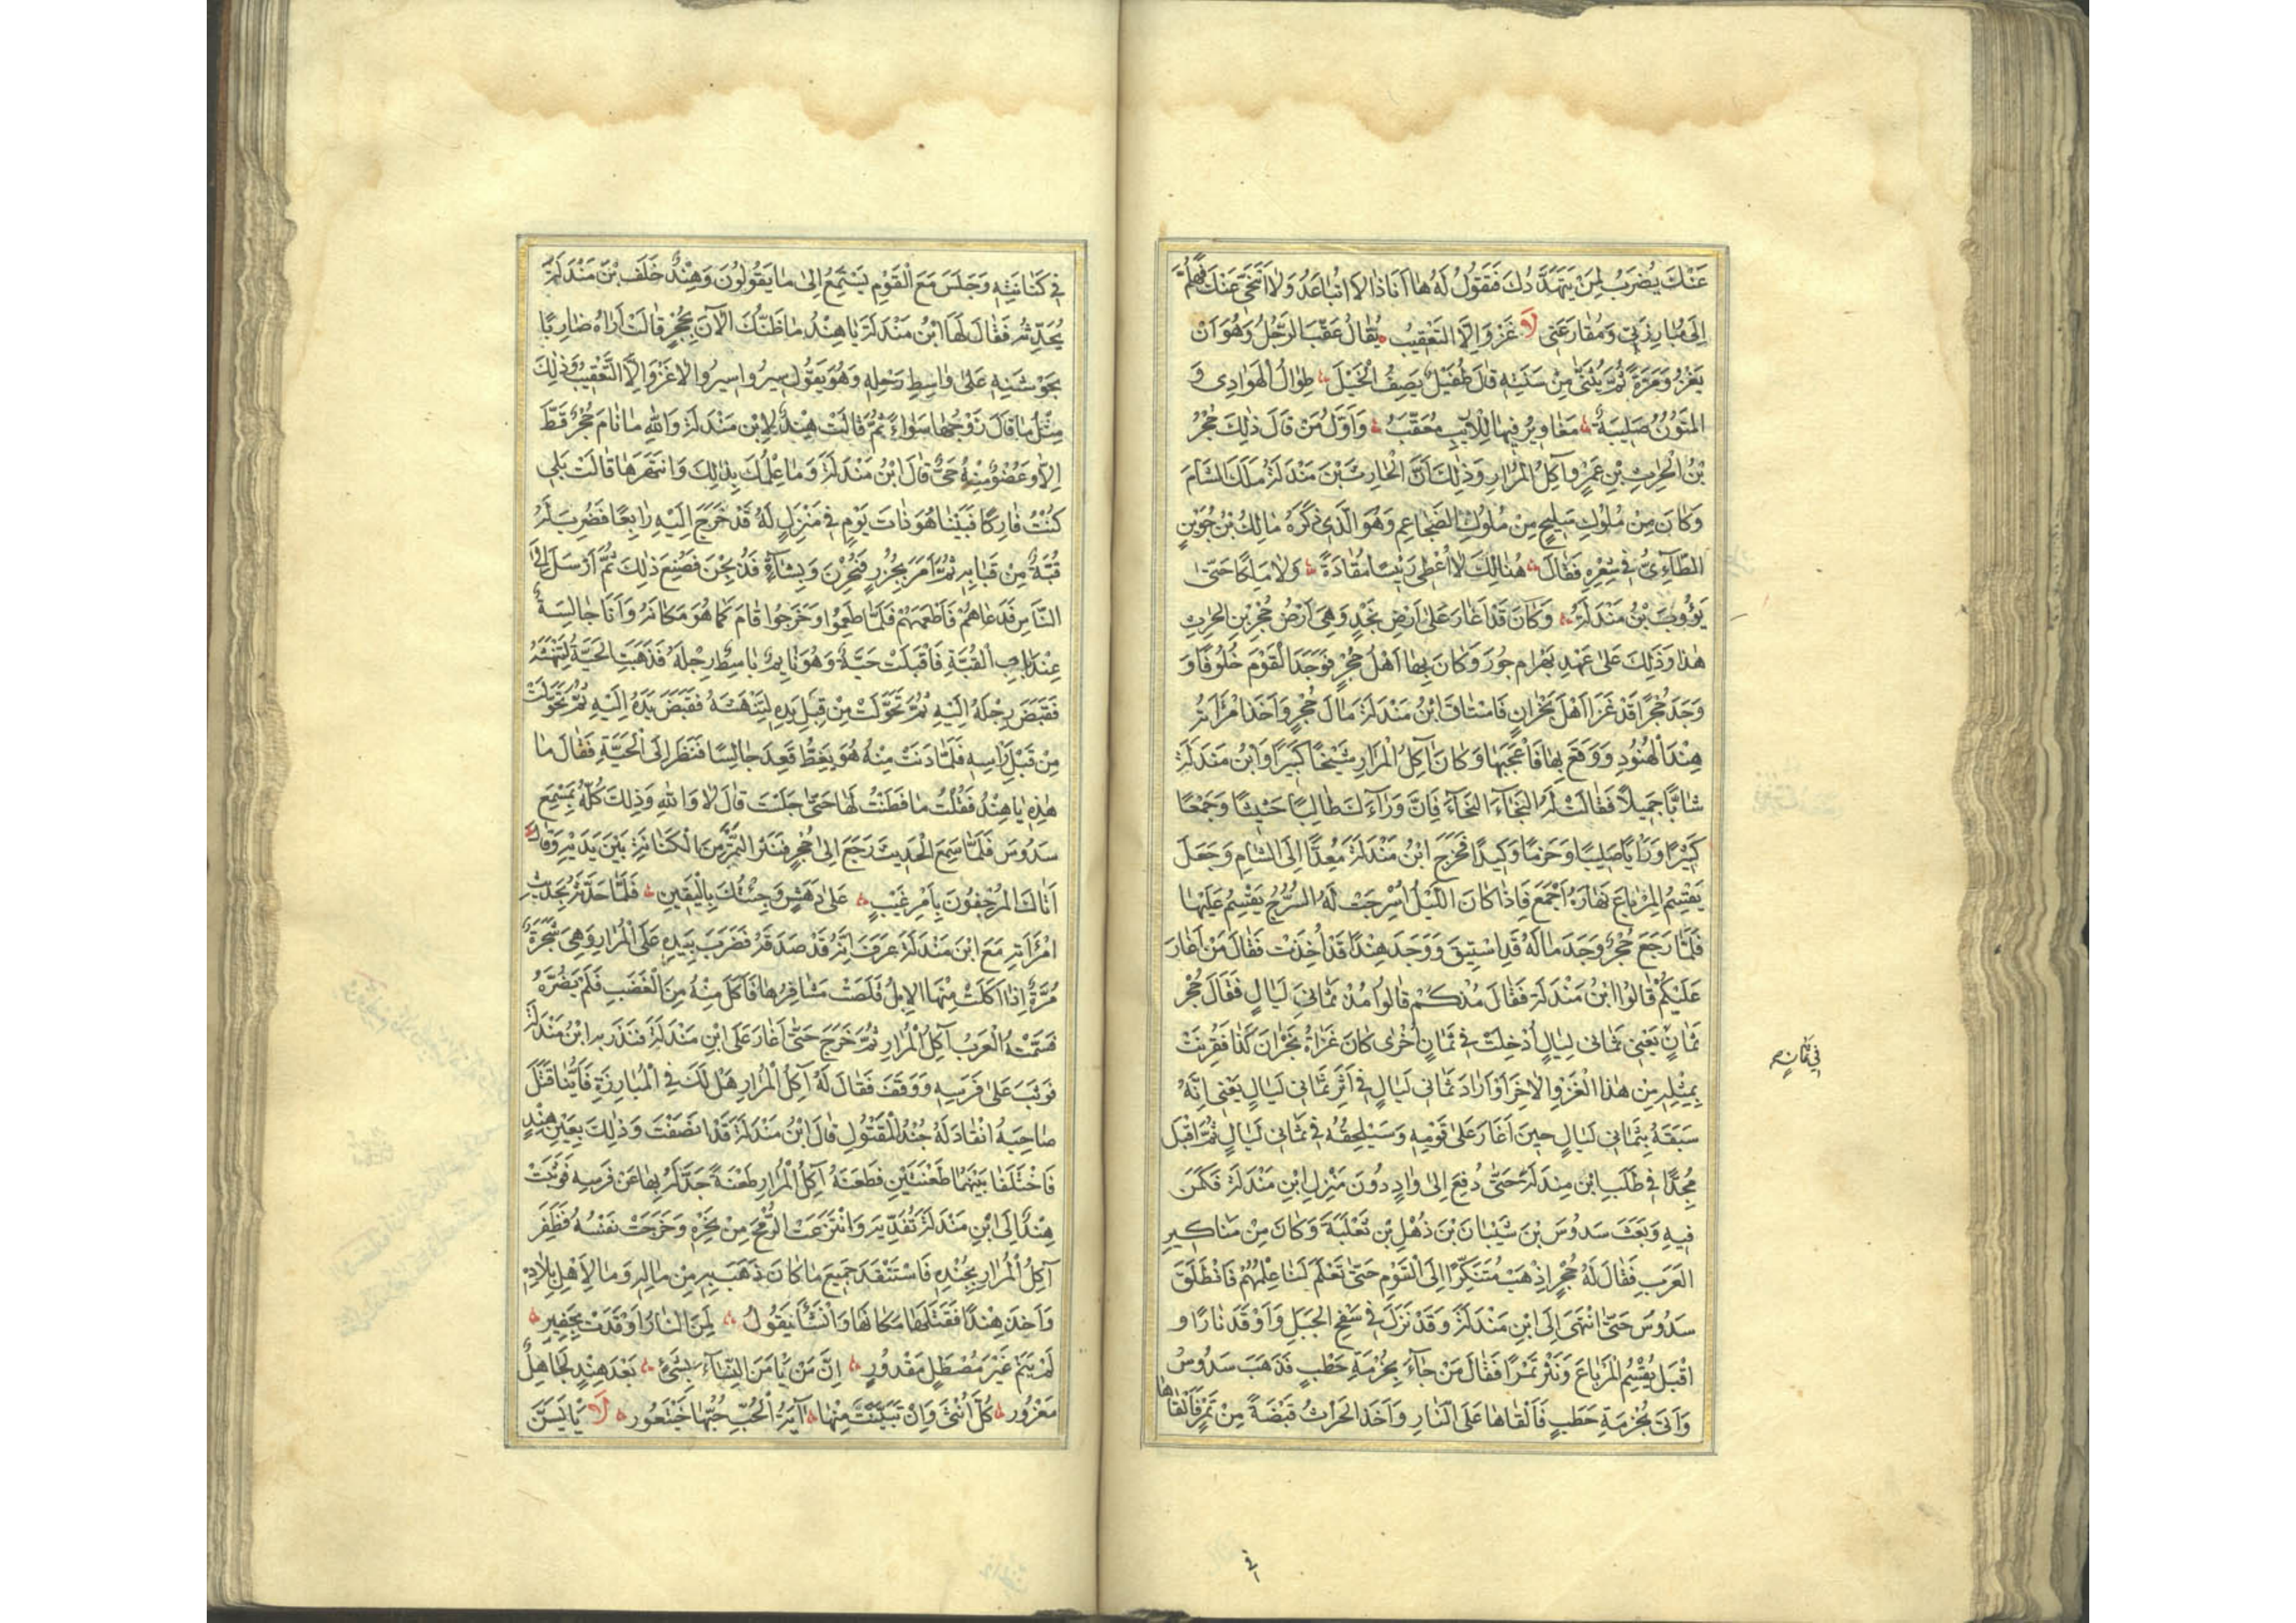 عَنْكَ يُضرَبُ لِمَنْ يَتَهَدَّدُكَ فَيَقُولُ لَهُ هَا اَنَا ذَا لَا اَتَبَاعَدُ وَلَا اَتَنَحّٰى عَنْكَ فَهَلُمَّ
اِلَى مُبَارَزَتِى وَمُقَارَعَتِى لَا غَزْوَ اِلَّا التَعْقِيبُ يُقَالُ عَقَّبَ الرَجُلُ وَهُوَ اَنْ
يَغْزُوَ مَرَّةً ثُمَّ يُثَنِّى مِنْ سَنَتِهِ قَالَ طُفَيْلٌ يَصِفُ الْخَيْلَ طِوَالُ الْهَوَادِى وَ
المتُونُ صَلِيبَةٌ مَغَاوِيرُ فِيهَا لِلْاَرِيبِ مُعَقَّبُ وَاَوَّلُ مَنْ قَالَ ذٰلِكَ حُجْرُ
بْنُ الْحٰرِثِ بْنِ عَمْرٍو آكِلُ المُرَارِ وَذٰلِكَ اَنَّ الْحَارِثَ بْنَ مَنْدَلَةَ مَلَكَ الشَامَ
وَكَانَ مِنْ مُلُوكِ سَلِيحٍ مِنْ مُلُوكِ الضَجَاعِمِ وَهُوَ الَّذِى ذَكَرَهُ مَالِكُ بْنُ جُوَيْنٍ
الطَّاءِىُّ فِى شِعْرِهِ فَقَالَ هُنَالِكَ لَا اُعْطِى رَئِيسًا مَقَادَةً وَلَا مَلِكًا حَتّٰى
يَؤُوبَ ابْنُ مَنْدَلَةَ وَكَانَ قَدْ اَغَارَ عَلَى اَرْضِ نَجْدٍ وَهِىَ اَرْضُ حُجْرِ بْنِ الحٰرِثِ
هٰذَا وَذٰلِكَ عَلَى عَهْدِ بَهْرَام جُورَ وَكَانَ بِهَا اَهْلُ حُجْرٍ فَوَجَدَ الْقَوْمَ خُلُوفًا وَ
وَجَدَ حُجْرًا قَدْ غَزَا اَهْلَ نَجْرَانٍ فَاسْتَاقَ ابْنُ مَنْدَلَةَ مَالَ حُجْرٍ وَاَخَذَ امْرَاَتَهُ
هِنْدَ الْهُنُودِ وَوَقَعَ بِهَا فَاَعْجَبَهَا وَكَانَ آكِلُ الْمُرَارِ شَيْخًا كَبِيرًا وَابْنُ مَنْدَلَةَ
شَابًّا جَمِيلًا فَقَالَتْ لَهُ النَجَاءَ النَجَاءَ فَاِنَّ وَرَآءَكَ طَالِبًا حَثِيثًا وَجَمْعًا
كَثِيرًا وَرَاْيًا صَلِيبًا وَحَزْمًا وَكَيْدًا فَخَرَجَ ابْنُ مَنْدَلَةَ مُغِدًّا اِلَى الشَامِ وَجَعَلَ
يَقْسِمُ المِرْبَاعَ نَهَارَهُ اَجْمَعَ فَاِذَا كَانَ اللَّيْلُ اُسْرِجَتْ لَهُ السُّرُجُ يَقْسِمُ عَلَيْهَا
فَلَمَّا رَجَعَ حُجْرٌ وَجَدَ مَالَهُ قَدِ اسْتِيقَ وَوَجَدَ هِنْدًا قَدْ اُخِذَتْ فَقَالَ مَنْ اَغَارَ
عَلَيْكُمْ قَالُوا ابْنُ مَنْدَلَةَ فَقَالَ مُذْ كَمْ قَالُوا مُذْ ثَمَانِىَ لَيَالٍ فَقَالَ حُجْر
ثَمَانٍ يَعْنِى ثَمَانِى لَيَالٍ اُدْخِلَتْ فِى ثَمَانٍ اُخْرَى كَانَ غَزَاةُ نَجْرَانَ كَذَا فَقُرِنَتْ
بِمِثْلِهِ مِن هٰذَا الْغَزْوِ الْاٰخِرِ اَوْ اَرَادَ ثَمَانِى لَيَالٍ فِى اَثَرِ ثَمَانِى لَيَالٍ يَعْنِى اِنَّهُ
سَبَقَهُ بِثَمَانِى لَيَالٍ حِينَ اَغَارَ عَلَى قَوْمِهِ وَسَيَلْحَقُهُ فِى ثَمَانِى لَيَالٍ ثُمَّ اَقْبَلَ
مُجِدًّا فِى طَلَبِ ابْنِ مندَلَةَ حَتَّى دُفِعَ اِلَى وَادٍ دُونَ مَنْزِلِ ابْنِ مَنْدَلَةَ فَكَمَنَ
فِيهِ وَبَعَثَ سَدُوسَ بْنَ شَيْبَانَ بْنَ ذُهْلِ بْنِ ثَعْلَبَةَ وَكَانَ مِنْ مَنَاكِيرِ
العَرَبِ فَقَالَ لَهُ حُجْرٌ اِذْهَبْ مُتَنَكِّرًا اِلَى الْقَوْمِ حَتَّى تَعْلَمَ لَنَا عِلْمَهُمْ فَانْطَلَقَ
سَدُوسَ حَتّٰى انْتَهَى اِلَى ابْنِ مَنْدَلَةَ وَقَدْ نَزَلَ فِى سَفْحِ الجَبَلِ وَاَوْقَدَ نَارًا وَ
اَقْبَلَ يُقْسِمُ المِرْبَاعَ وَنَثَرَ تَمْرًا فَقَالَ مَنْ جَآءَ بِحُزْمَةِ حَطَبٍ فَذَهَبَ سَدُوسُ
وَاَتَى بِحُزْمَةِ حَطَبٍ فَاَلْقَاهَا عَلَى النَّارِ وَاَخَذَ قَبْضَةً مِنْ تَمْرٍ فَاَلْقَاهَا
فى ثمانٍ صح
فى
فِى كَنَانَتِهِ وَجَلَسَ مَعَ الْقَوْمِ يَسْتَمِعُ اِلَى مَا يَقُولُونَ وَهِنْدٌ خَلْفَ بْنِ مَنْدَلَةَ
تُحَدِّثُهُ فَقَالَ لَهَا ابْنُ مَنْدَلَةَ يَا هِنْدُ مَا ظَنُّكَ الْآنَ بِحُجْرٍ قَالَتْ اَرَاهُ ضَارِبًا
بِجَوْشَنِهِ عَلَى وَاسِطِ رَحْلِهِ وَهُوَ يَقُولُ سِيرُوا سِيرُوا لَا غَزْوَ اِلَّا التَّعْقِيبُ وَذٰلِكَ
مِثْلُ مَا قَالَ زَوْجُهَا سَوَاءً ثُمَّ قَالَتْ هِنْدٌ لِابْنِ مَنْدَلَةَ وَاللّٰهِ مَا نَامَ حُجْرٌ قَطُّ
اِلَّا وَعُضْوٌ مِنْهُ حَىٌّ قَالَ ابْنُ مَنْدَلَةَ وَمَا عِلْمُكَ بِذٰلِكَ وَانْتَهَرَهَا قَالَتْ بَلَى
كُنْتُ فَارِكًا فَبَيْنَا هُوَ ذَاتَ يَوْمٍ فِى مَنْزِلٍ لَهُ قَدْ خَرَجَ اِلَيْهِ رَابِعًا فَضُرِبَ لَهُ
قُبَّةٌ مِنْ قِبَابِهِ ثُمَّ اَمَرَ بِجُزُرٍ فَنُحِرْنَ وَبِشَآءٍ فَذُبِحْنَ فَصُنِعَ ذٰلِكَ ثُمَّ اَرْسَلَ اِلَى
النَّاسِ فَدَعَاهُمْ فَاَطْعَمَهُمْ فَلَمَّا طَعِمُوا وَخَرَجُوا قَامَ كَمَا هُوَ مَكَانَهُ وَاَنَا جَالِسَةٌ
عِنْدَ بَابِ الْقُبَّةِ فَاَقْبَلَتْ حَيَّةٌ وَهُوَ نَايِمٌ بَاسِطٌ رِجْلَهُ فَذَهَبَتِ الحَيَّةُ لِتَنْهَشَهُ
فَقَبَضَ رِجْلَهُ اِلَيْهِ ثُمَّ تَحَوَّلَتْ مِنْ قِبَلِ يَدِهِ لِتَنْهَشَهُ فَقَبَضَ يَدَهُ اِلَيْهِ ثُمَّ تَحَوَّلَتْ
مِنْ قِبَلِ رَاْسِهِ فَلَمَّا دَنَتْ مِنْهُ هُوَ يَغِطُّ قَعَدَ جَالِسًا فَنَظَرَ اِلَى الْحَيَّةِ فَقَالَ مَا
هٰذِهِ يَا هِنْدُ فَقُلْتُ مَا فَطَنْتُ لَهَا حَتّٰى جَلَسْتَ قَالَ لَا وَاللّٰهِ وَذٰلِكَ كُلُّهُ بِمَسْمَعِ
سَدُوسَ فَلَمَّا سَمِعَ الْحَدِيثَ رَجَعَ اِلَى حُجْرٍ فَنَثَرَ التَمْرَ مِنَ الْكَنَانَةِ بَيْنَ يَدَيْهِ وَقَالَ
اَتَاكَ المُرْجِفُونَ بِاَمْرِ غَيْبٍ عَلَى دَهَشٍ وَجِئْتُكَ بِالْيَقِينِ فَلَمَّا حَدَّثَهُ بِحَدِيثِ
امْرَاَتِهِ مَعَ ابْنِ مَنْدَلَةَ عَرَفَ اَنَّهُ قَدْ صَدَقَهُ فَضَرَبَ بِيَدِهِ عَلَى الْمُرَارِ وَهِىَ شَجَرَةٌ
مُرَّةٌ اِذَا اَكَلَتْ مِنْهَا الاِبِلُ قَلَصَتْ مَشَافِرُهَا فَاَكَلَ مِنْهُ مِنَ الْغَضَبِ فَلَمْ يَضُرَّهُ
فَسَمَّتْهُ الْعَرَبُ آكِلَ الْمُرَارِ ثُمَّ خَرَجَ حَتّٰى اَغَارَ عَلَى ابْنِ مَنْدَلَةَ فَنَذَرَ بِهِ ابْنُ مَنْدَلَةَ
فَوَثَبَ عَلَى فَرَسِهِ وَوَقَفَ فَقَالَ لَهُ آكِلُ الْمُرَارِ هَلْ لَكَ فِى الْمُبَارِزَةِ فَاَيُّنَا قَتَلَ
صَاحِبَهُ انْقَادَ لَهُ جُنْدُ الْمَقْتُولِ قَالَ ابْنُ مَنْدَلَةَ قَدْ اَنْصَفْتَ وَذٰلِكَ بِعَيْنِ هِنْدٍ
فَاخْتَلَفَا بَيْنَهُمَا طَعْنَتَيْنِ فَطَعَنَهُ آكِلُ الْمُرَارِ طَعْنَةً جَدَّلَهُ بِهَا عَنْ فَرَسِهِ فَوَثَبَتْ
هِنْدٌ اِلَى ابْنِ مَنْدَلَةَ تُفَدِّيهِ وَانْتَزَعَتِ الرُّمْحَ مِنْ نَحْرِهِ وَخَرَجَتْ نَفْسُهُ فَظَفِرَ
آكِلُ الْمُرَارِ بِجُنْدِهِ فَاسْتَنْقَذَ جَمِيعَ مَا كَانَ ذَهَبَ بِهِ مِنْ مَالِهِ وَمَالِ اَهْلِ بِلَادِهِ
وَاَخَذَ هِنْدًا فَقَتَلَهَا مَكَانَهَا وَاَنْشَاَ يَقُولُ لِمَنِ النَارُ اُوقِدَتْ بِحَفِيرٍ
لَمْ يَنَمْ غَيْرَ مُصْطَلٍ مَقْدُورٍ اِنَّ مَنْ يَاْمَنِ النِّسَاءَ بِشَىْءٍ بَعْدَ هِنْدٍ لَجَاهِلٌ
مَغْرُور كُلُّ اُنْثَى وَاِنْ تَبَيَّنْتَ مِنْهَا آيَةَ الْحُبِّ حُبُّهَا خَيْتَعُور لَا يَايَسَنَّ